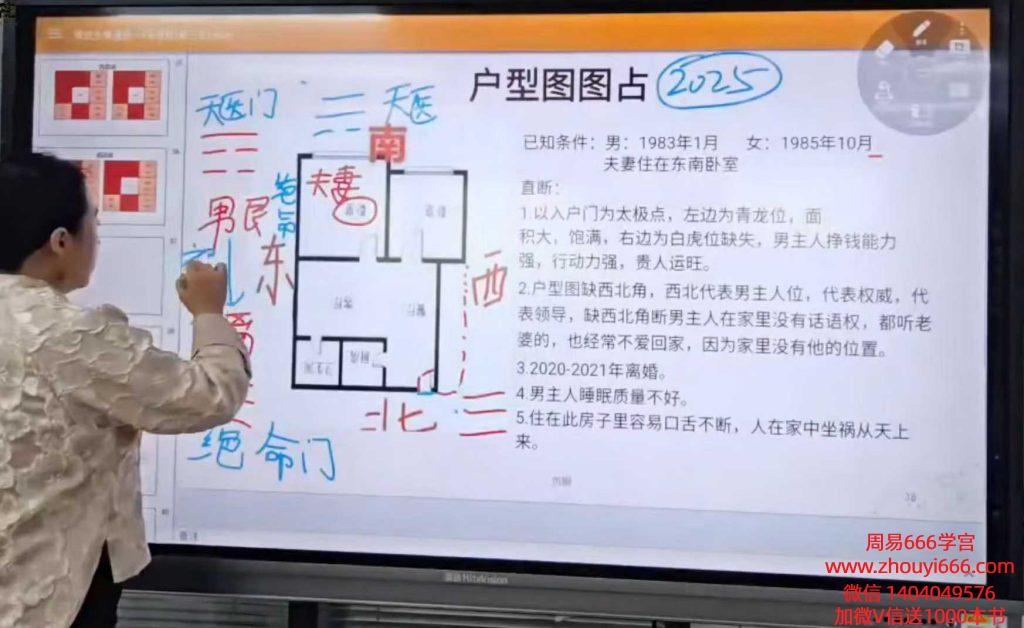 户型图图占
2025
已知条件：男：1983年1月 女：1985年10月
夫妻住在东南卧室
直断：
1.以入户门为太极点，左边为青龙位，面
积大，饱满，右边为白虎位缺失，男主人挣钱能力
强，行动力强，贵人运旺。
2.户型图缺西北角，西北代表男主人位，代表权威，代
表领导，缺西北角断男主人在家里没有话语权，都听老
婆的，也经常不爱回家，因为家里没有他的位置。
3.2020-2021年离婚。
4.男主人睡眠质量不好。
5.住在此房子里容易口舌不断，人在家中坐祸从天上
来。
天医门
天医
南
夫妻
绝命
男艮
东
西
客厅
餐厅
厨房
卫生间
北
绝命门
38
Hitevision
周易666学宫
www.zhouyi666.com
微信 1404049576
加微V信送1000本书